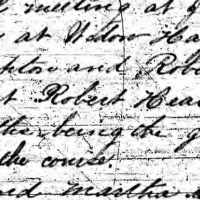 meeting at
at Widow Ha
and Rob
Robert Hea
being the
the course.
and martha